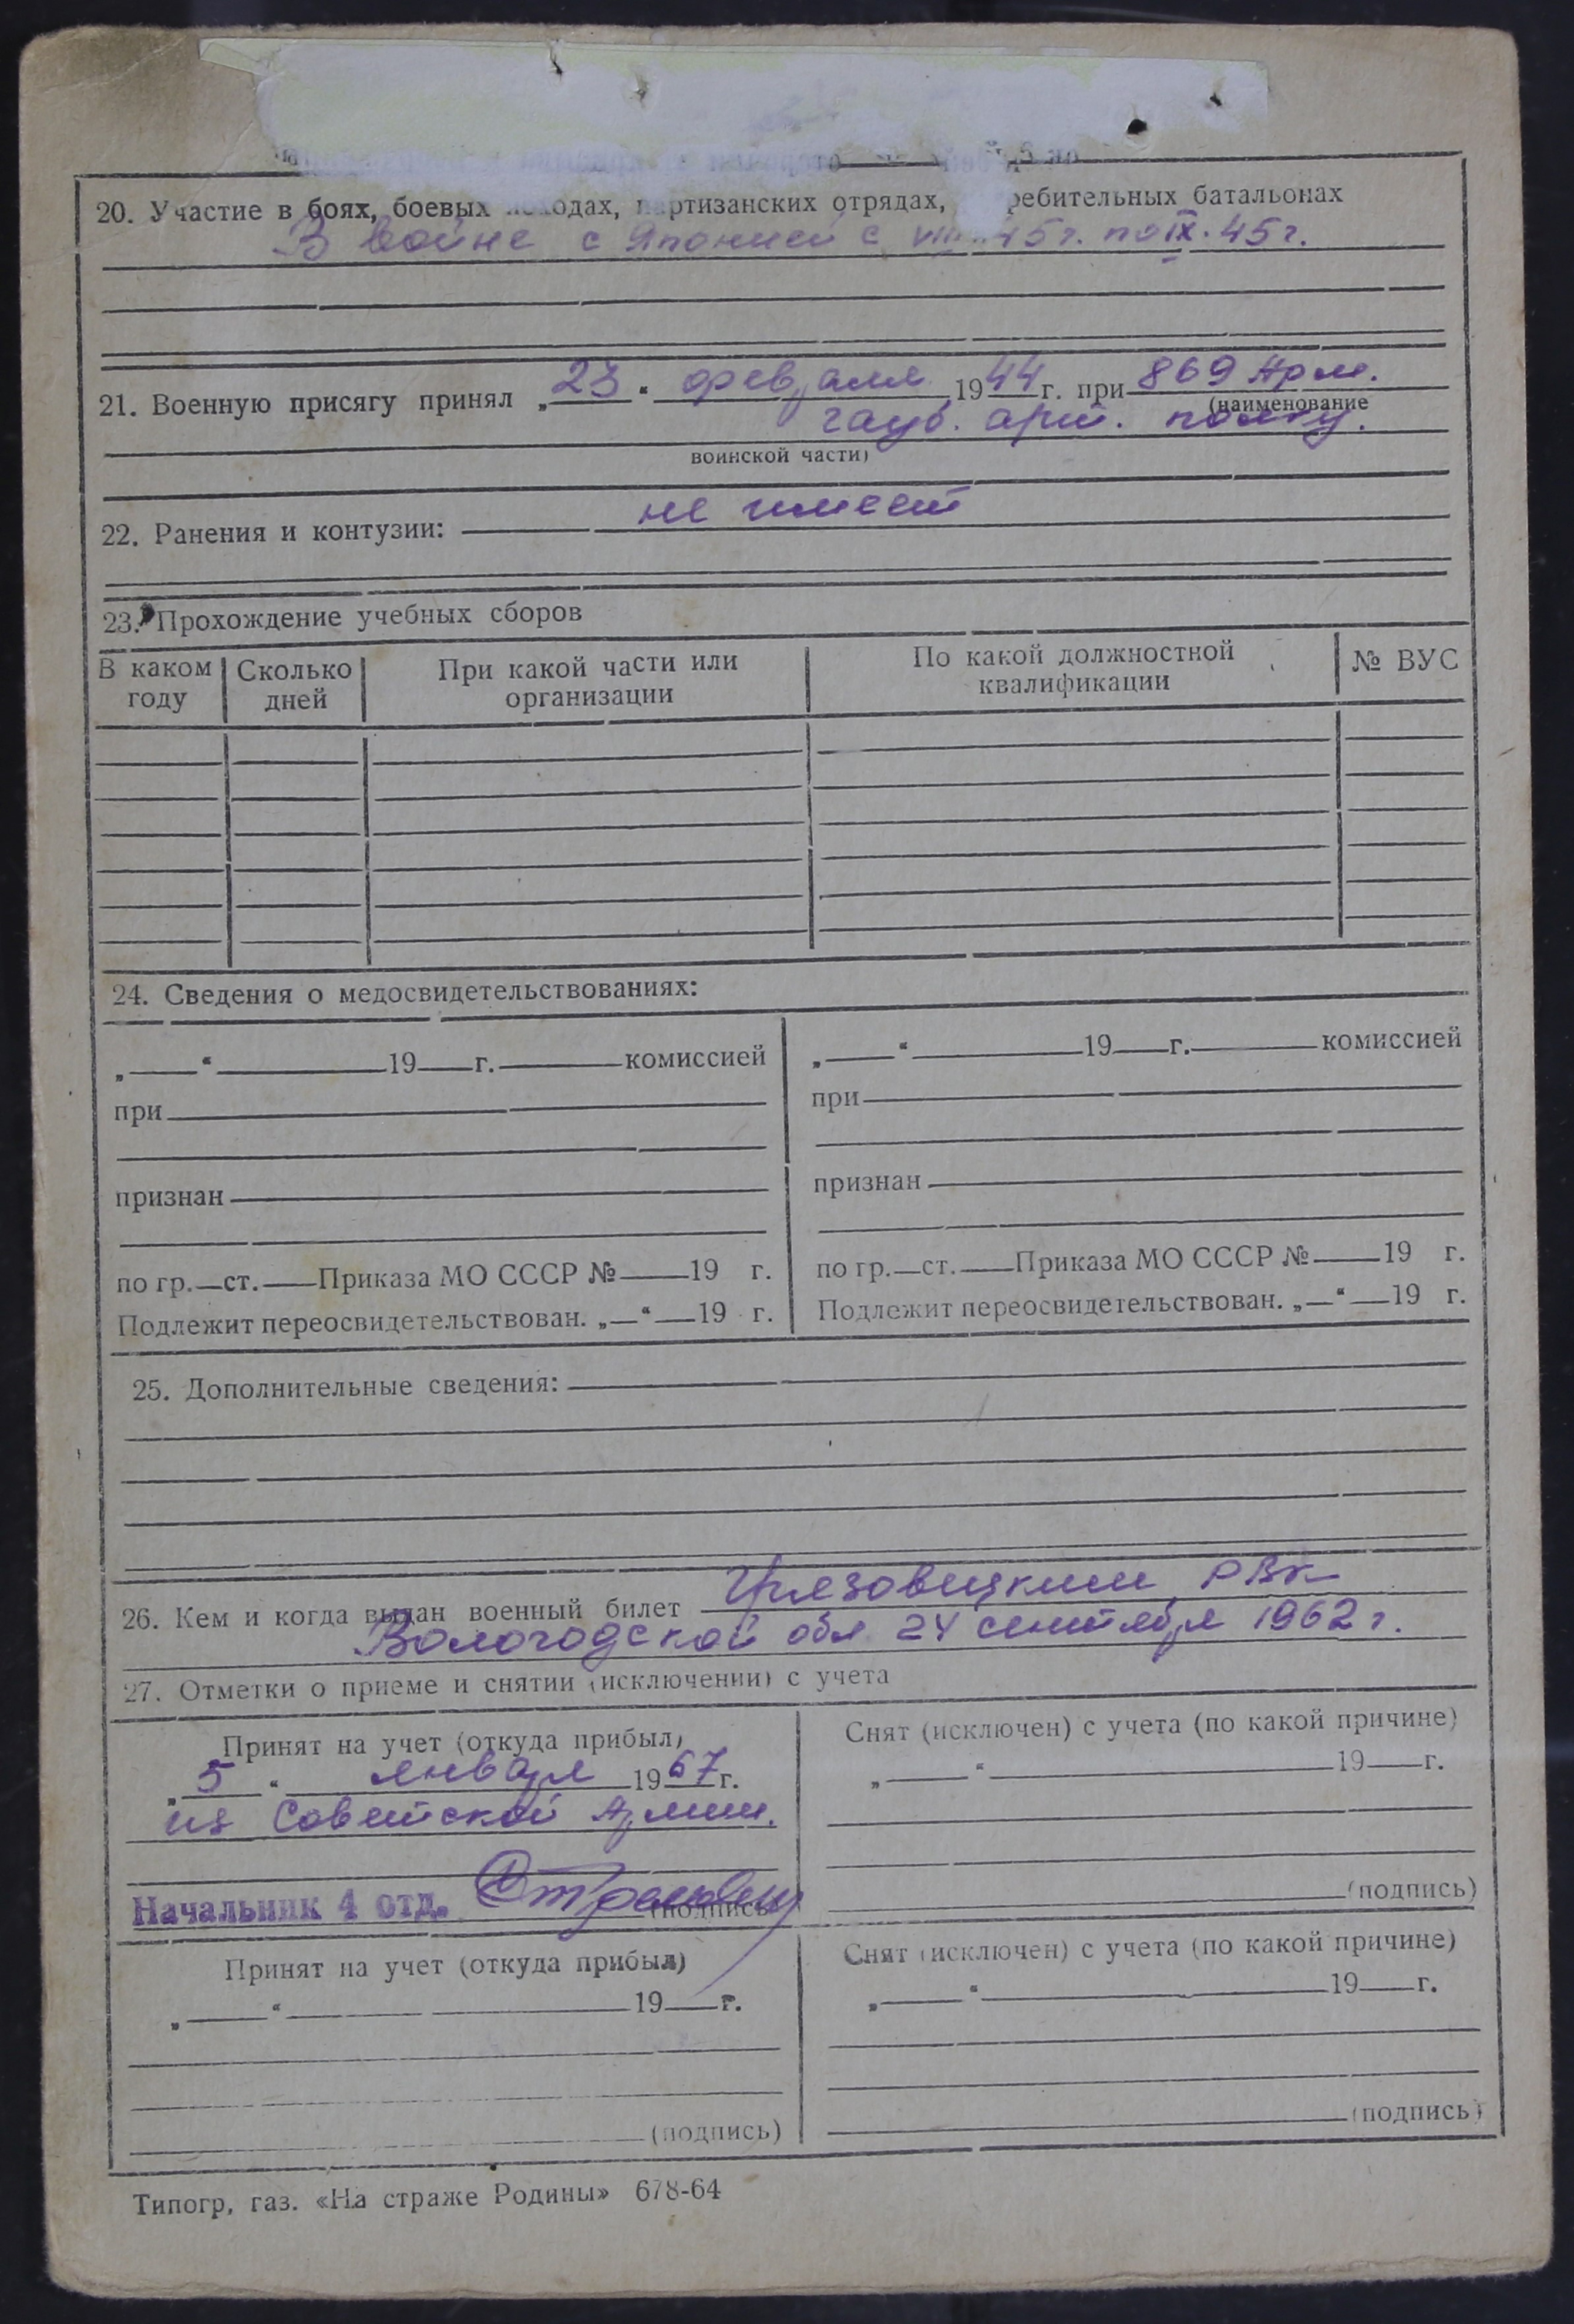 20. Участие в боях, боевых походах, партизанских отрядах, ребительных батальонах
В войне с Японией с VIII.45г. по IX.45г.
21. Военную присягу принял „23“ февраля 1944г. при 869 Арм.
(наименование
гауб. арт. полку.
воинской части)
22. Ранения и контузии: не имеет
23. Прохождение учебных сборов
В каком году Сколько дней При какой части или организации По какой должностной квалификации № ВУС
24. Сведения о медосвидетельствованиях:
„ “ 19 г. комиссией
при
признан
по гр. ст. Приказа МО СССР № 19 г.
Подлежит переосвидетельствован. „ “ 19 г.
„ “ 19 г. комиссией
при
признан
по гр. ст. Приказа МО СССР № 19 г.
Подлежит переосвидетельствован. „ “ 19 г.
25. Дополнительные сведения:
26. Кем и когда выдан военный билет Грязовецким РВК
Вологодской обл 24 сентября 1962г.
27. Отметки о приеме и снятии (исключении) с учета
Принят на учет (откуда прибыл)
„5“ января 1967г.
из Советской Армии.
Начальник 4 отд. (подпись)
Снят (исключен) с учета (по какой причине)
„ “ 19 г.
(подпись)
Принят на учет (откуда прибыл)
„ “ 19 г.
(подпись)
Снят (исключен) с учета (по какой причине)
„ “ 19 г.
(подпись)
Типогр, газ. «На страже Родины» 678-64